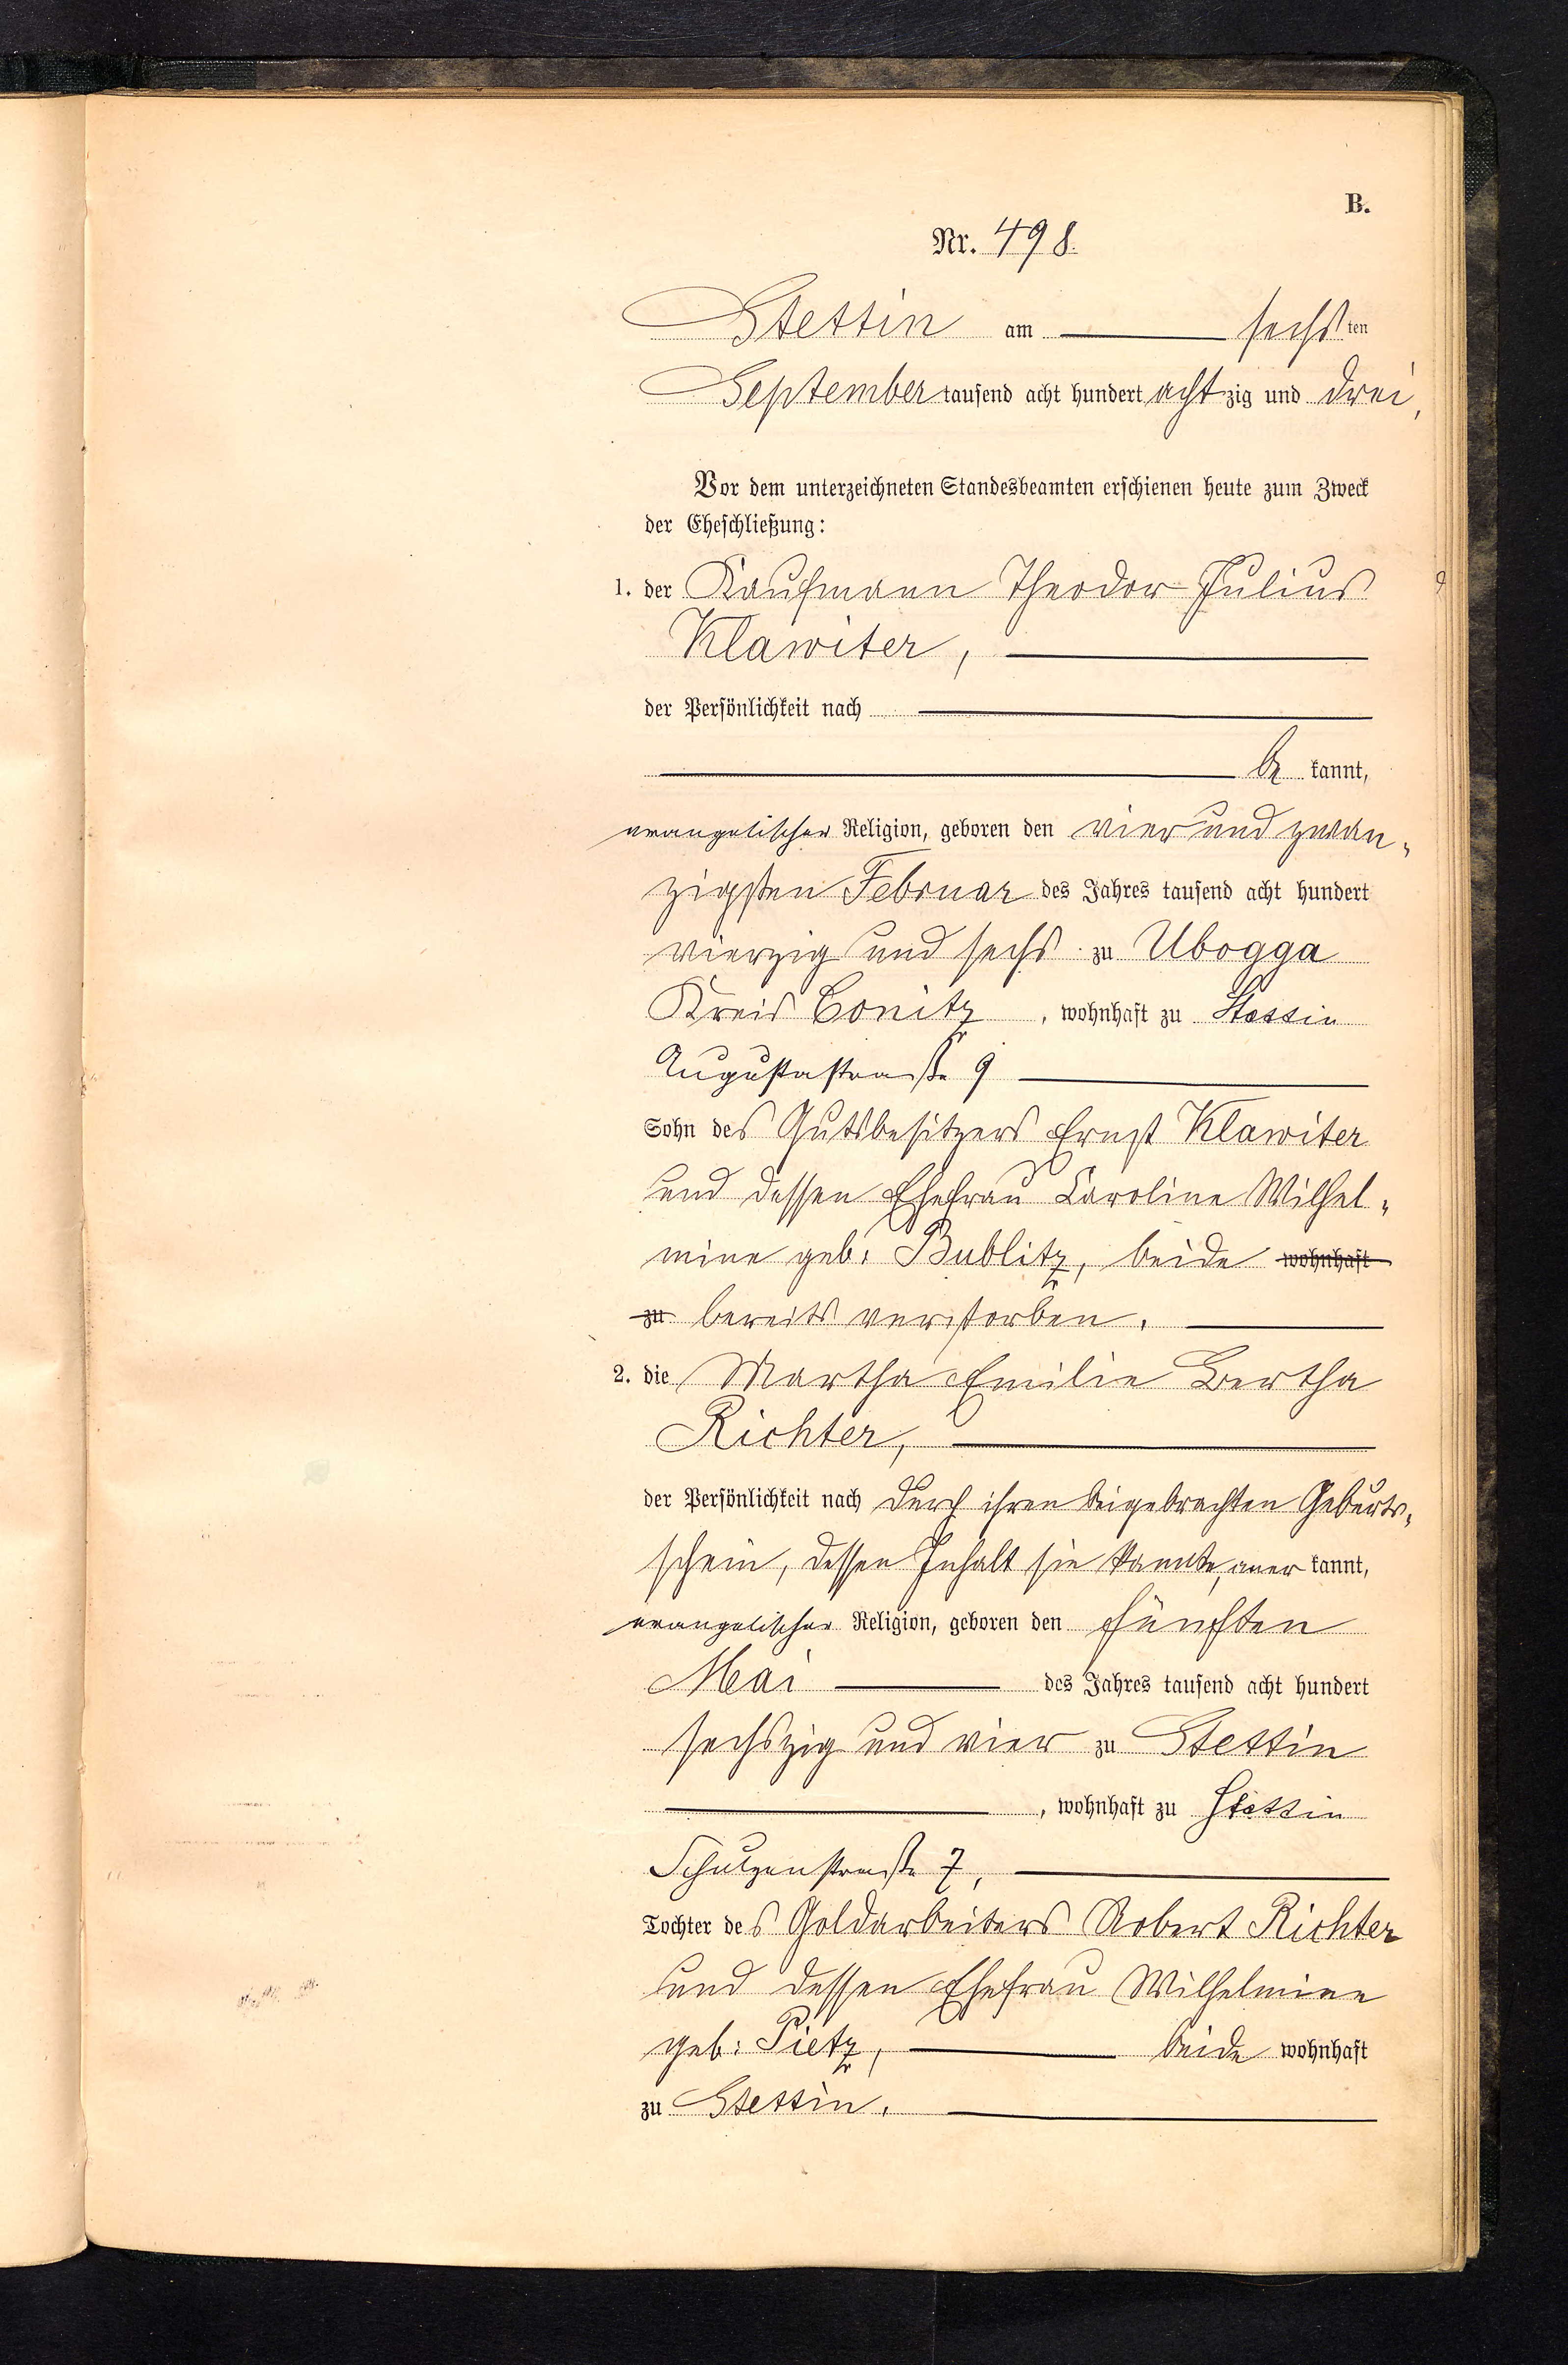 B.
Nr. 498.
Stettin am sechsten
September tausend acht hundert achtzig und drei,
Vor dem unterzeichneten Standesbeamten erschienen heute zum Zweck
der Eheschließung:
1. der Kaufmann Theodor Julius
Klawiter,
der Persönlichkeit nach
be kannt,
evangelischer Religion, geboren den vier und zwan-
zigsten Februar des Jahres tausend acht hundert
vierzig und sechs zu Ubogga
Kreis Conitz, wohnhaft zu Stettin
Augustastraße 9
Sohn des Gutsbesitzers Ernst Klawiter
und dessen Ehefrau Caroline Wilhel-
mine geb. Bublitz, beide wohnhaft
zu bereits verstorben.
2. die Martha Emilie Bertha
Richter,
der Persönlichkeit nach durch ihren beigebrachten Geburts-
schein, dessen Inhalt sie kannte, aner kannt,
evangelischer Religion, geboren den fünften
Mai des Jahres tausend acht hundert
sechszig und vier zu Stettin
, wohnhaft zu Stettin
Schulzenstraße 7,
Tochter des Goldarbeiters Robert Richter
und dessen Ehefrau Wilhelmine
geb: Pietz, beide wohnhaft
zu Stettin.